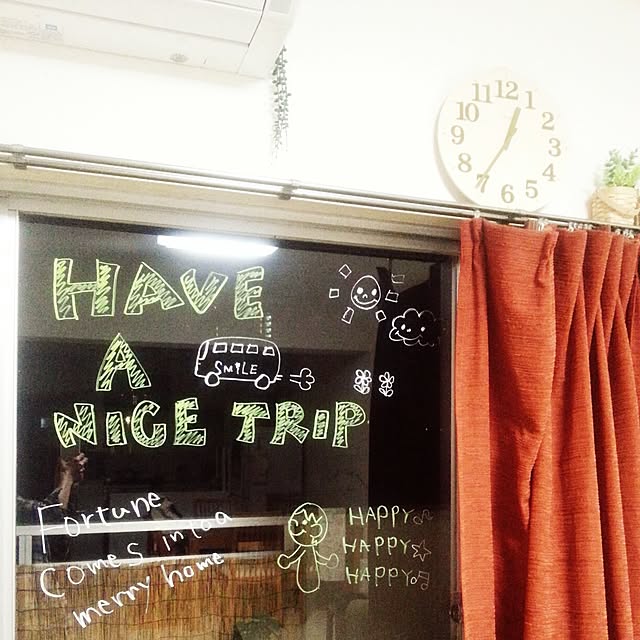 HAVE
A
SMILE
NICE TRIP
Fortune
comes in to a
merry home
HAPPY♫
HAPPY☆
HAPPY♫
11 12 1
10 2
9 3
8 4
7 6 5